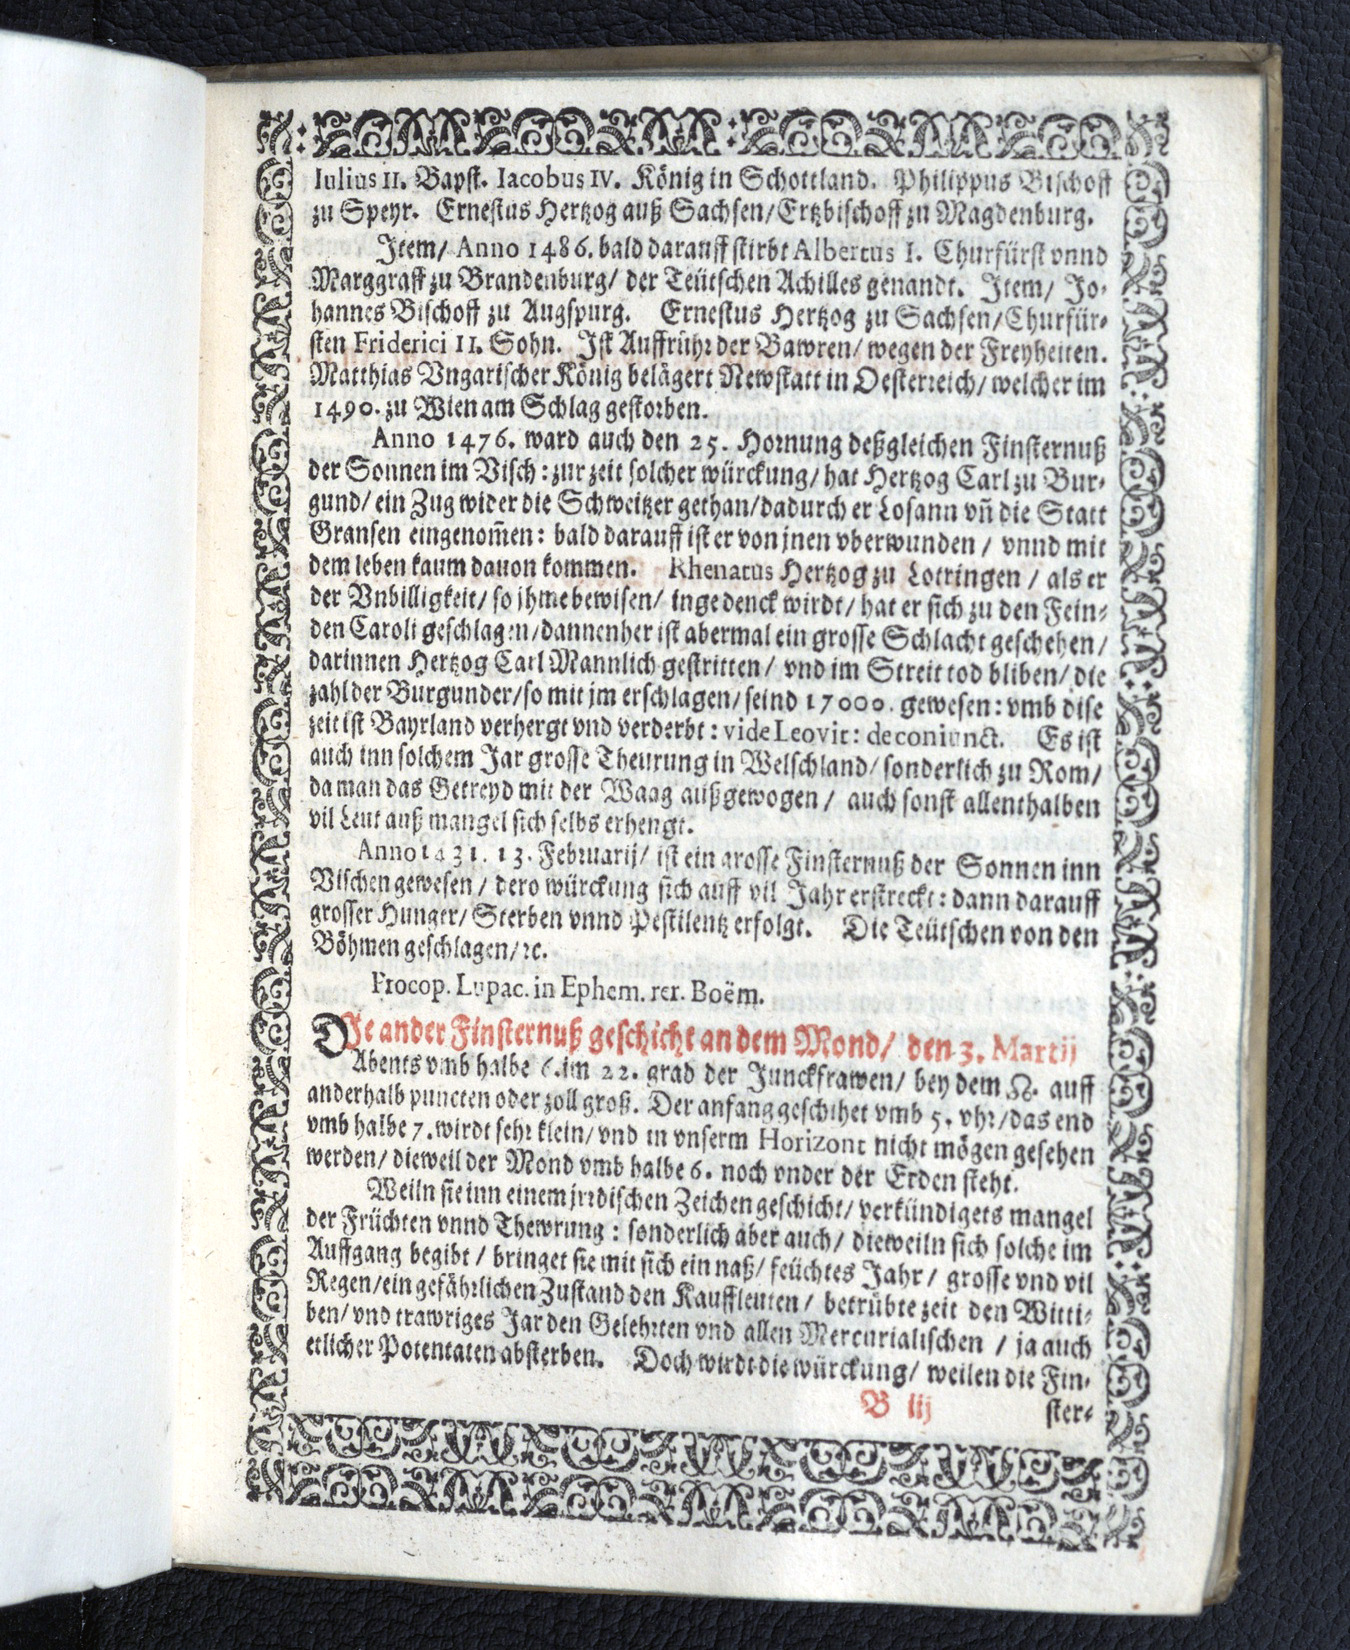 Iulius II. Bapst. Iacobus IV. König in Schottland. Philippus Bischoff
zu Speyr. Ernestus Hertzog auß Sachsen/Ertzbischoff zu Magdenburg.
Item/ Anno 1486. bald darauff stirbt Albertus I. Churfürst vnnd
Marggraff zu Brandenburg/ der Teütschen Achilles genandt. Item/ Jo-
hannes Bischoff zu Augspurg. Ernestus Hertzog zu Sachsen/Churfür-
sten Friderici II. Sohn. Ist Auffrühr der Bawren/ wegen der Freyheiten.
Matthias Vngarischer König belägert Newstatt in Oesterreich/ welcher im
1490. zu Wien am Schlag gestorben.
Anno 1476. ward auch den 25. Hornung deßgleichen Finsternuß
der Sonnen im Visch: zur zeit solcher würckung/ hat Hertzog Carl zu Bur-
gund/ ein Zug wider die Schweitzer gethan/dadurch er Losann vñ die Statt
Gransen eingenom̃en: bald darauff ist er von jnen vberwunden / vnnd mit
dem leben kaum dauon kommen. Rhenatus Hertzog zu Lotringen / als er
der Vnbilligkeit/ so jhme bewisen/ ingedenck wirdt/ hat er sich zu den Fein-
den Caroli geschlagen/dannenher ist abermal ein grosse Schlacht geschehen/
darinnen Hertzog Carl Mannlich gestritten/ vnd im Streit tod bliben/ die
zahl der Burgunder/so mit jm erschlagen/ seind 17000. gewesen: vmb dise
zeit ist Bayrland verhergt vnd verderbt: vide Leovit: de coniunct. Es ist
auch inn solchem Jar grosse Theurung in Welschland/ sonderlich zu Rom/
da man das Getreyd mit der Waag außgewogen / auch sonst allenthalben
vil Leut auß mangel sich selbs erhengt.
Anno 1431. 13. Februarij/ ist ein grosse Finsternuß der Sonnen inn
Vischen gewesen / dero würckung sich auff vil Jahr erstreckt: dann darauff
grosser Hunger/ Sterben vnnd Pestilentz erfolgt. Die Teütschen von den
Böhmen geschlagen/ꝛc.
Procop. Lupac. in Ephem. rer. Boëm.
DIe ander Finsternuß geschicht an dem Mond/ den 3. Martij
Abents vmb halbe 6. im 22. grad der Junckfrawen/ bey dem ☊. auff
anderhalb puncten oder zoll groß. Der anfang geschihet vmb 5. vhr/das end
vmb halbe 7. wirdt sehr klein/ vnd in vnserm Horizont nicht mögen gesehen
werden/ dieweil der Mond vmb halbe 6. noch vnder der Erden steht.
Weiln sie inn einem jrrdischen Zeichen geschicht/ verkündigets mangel
der Früchten vnnd Thewrung: sonderlich aber auch/ dieweiln sich solche im
Auffgang begibt / bringet sie mit sich ein naß/ feüchtes Jahr / grosse vnd vil
Regen/ein gefährlichen Zustand den Kauffleuten / betrübte zeit den Witti-
ben/ vnd trawriges Jar den Gelehrten vnd allen Mercurialischen / ja auch
etlicher Potentaten absterben. Doch wirdt die würckung/ weilen die Fin-
B iij ster-